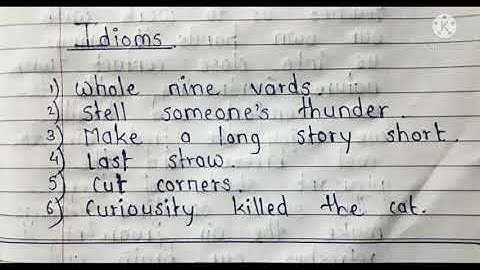 Idioms.
1) Whole nine yards.
2) Stell someone's thunder.
3) Make a long story short.
4) Last straw.
5) Cut corners.
6) Curiousity killed the cat.